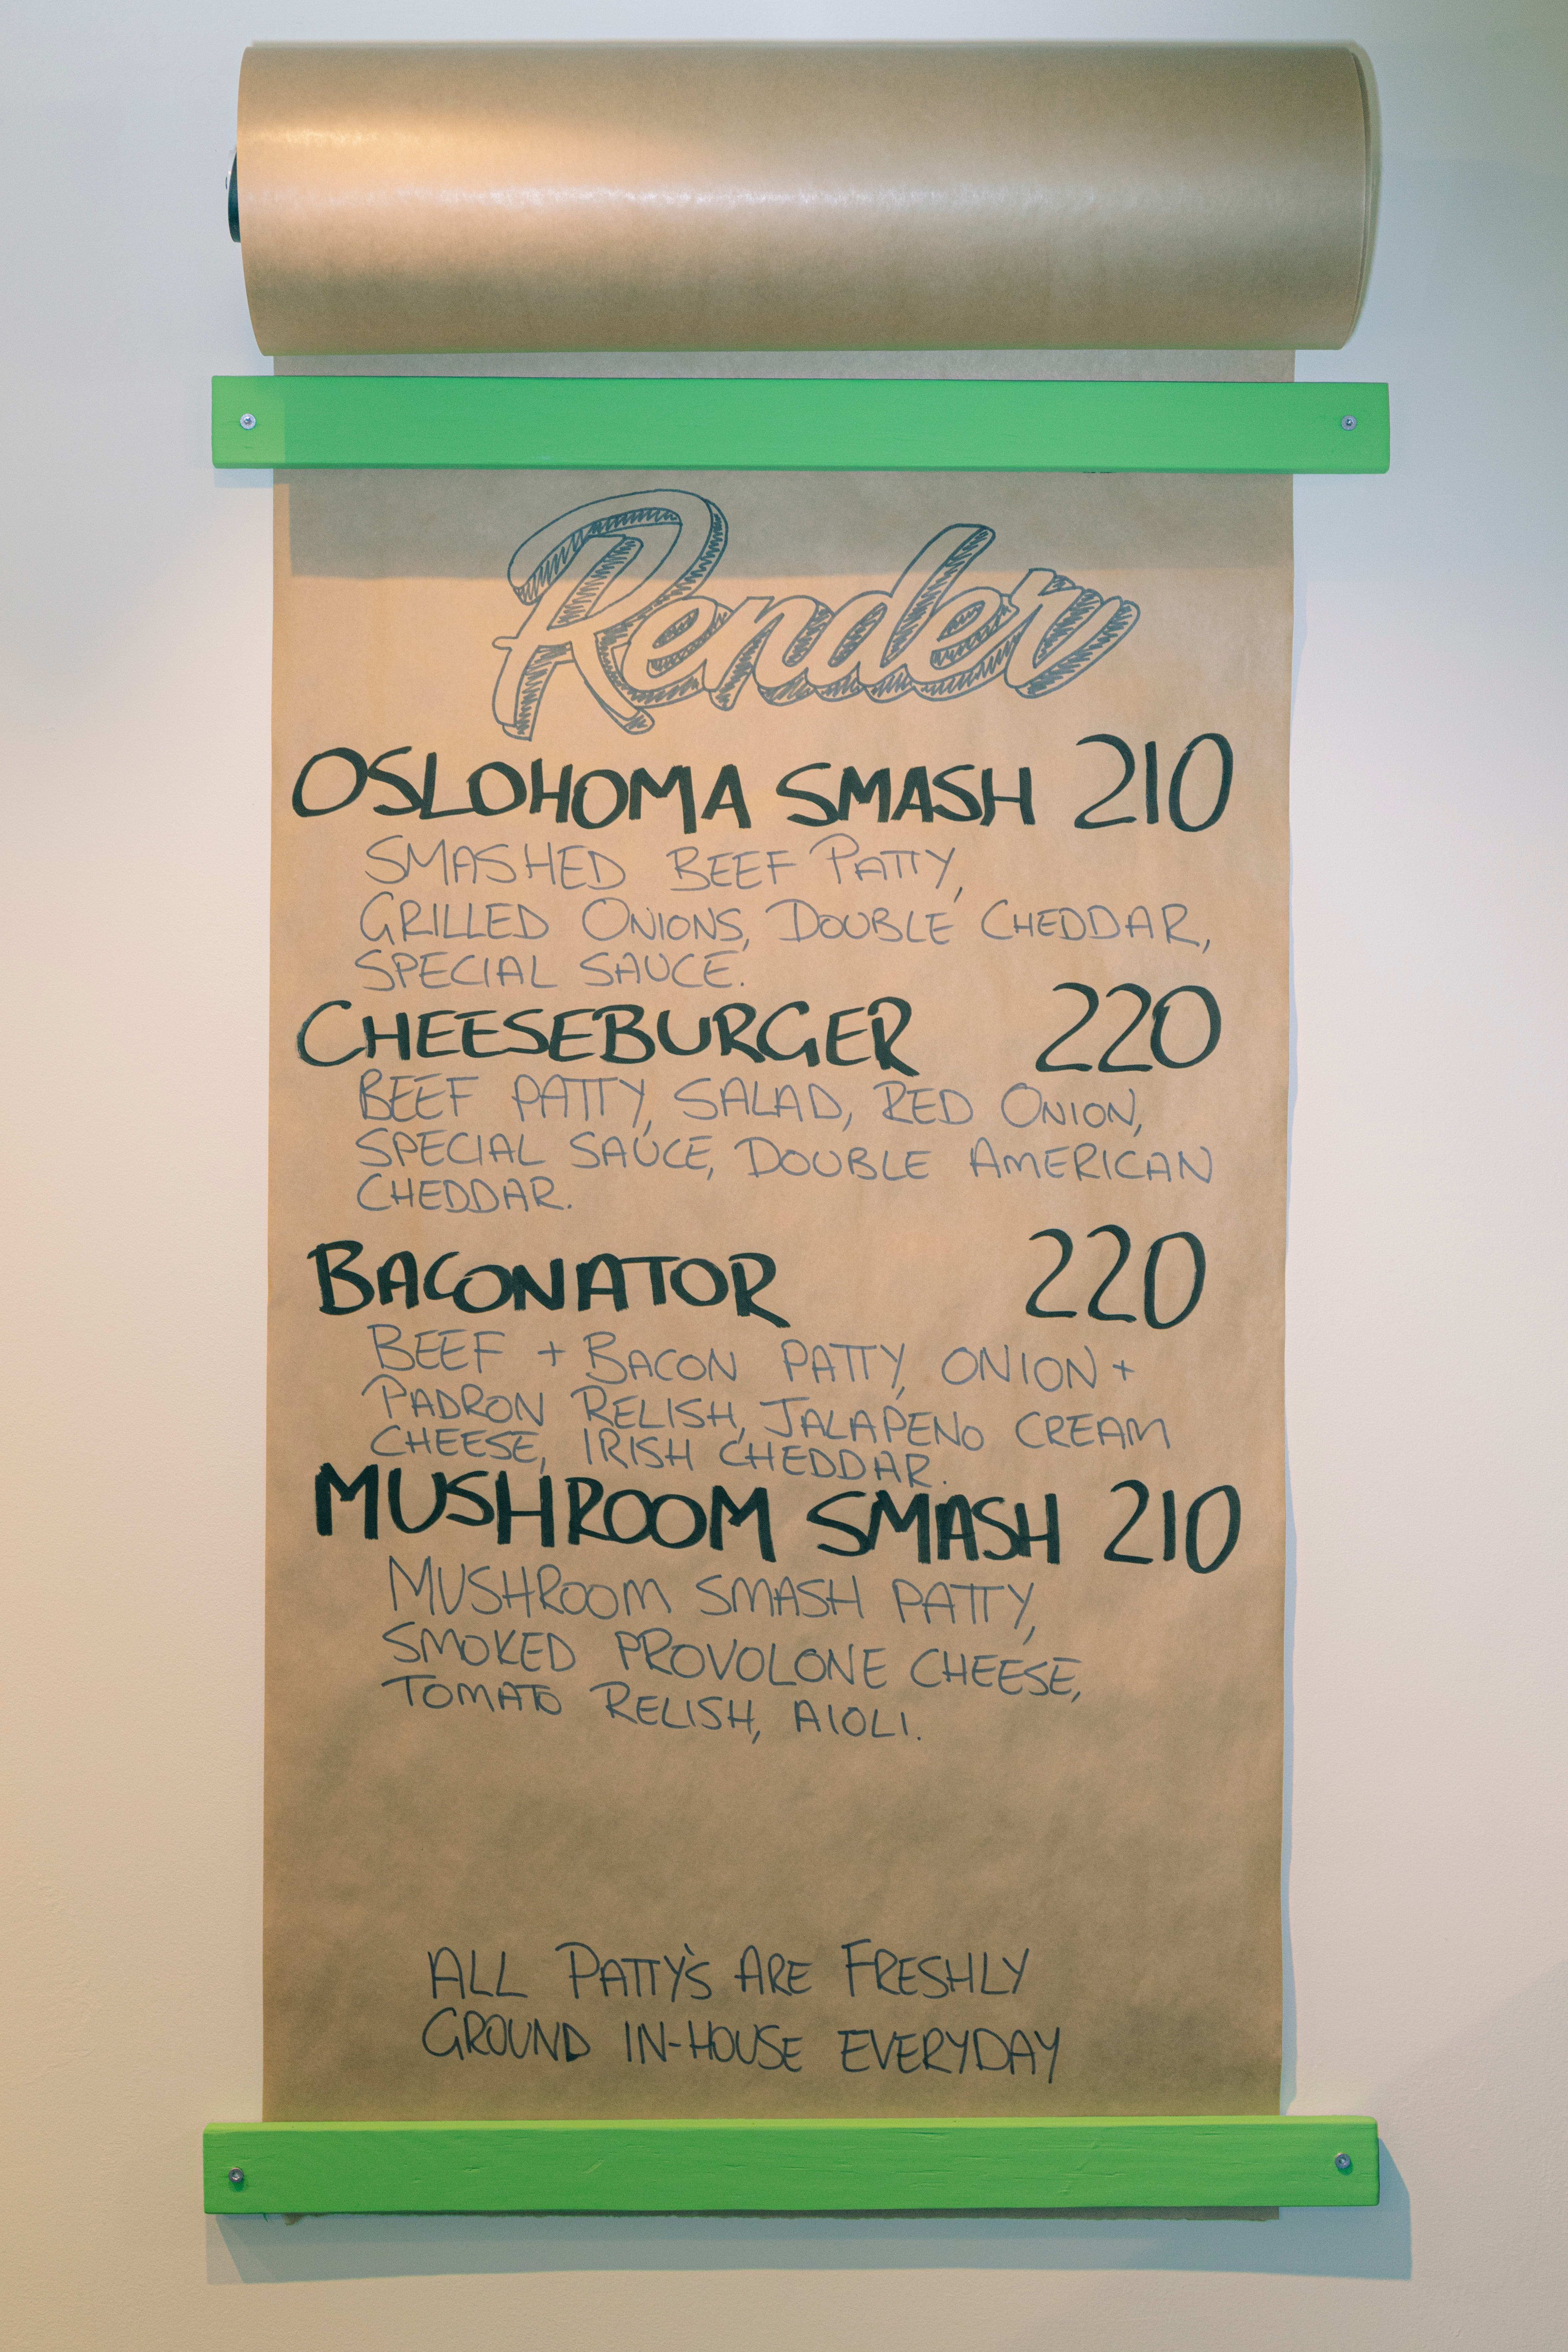 Render
OSLOHOMA SMASH 210
SMASHED BEEF PATTY,
GRILLED ONIONS, DOUBLE CHEDDAR,
SPECIAL SAUCE.
CHEESEBURGER 220
BEEF PATTY, SALAD, RED ONION,
SPECIAL SAUCE, DOUBLE AMERICAN
CHEDDAR.
BACONATOR 220
BEEF + BACON PATTY, ONION +
PADRON RELISH, JALAPENO CREAM
CHEESE, IRISH CHEDDAR.
MUSHROOM SMASH 210
MUSHROOM SMASH PATTY,
SMOKED PROVOLONE CHEESE,
TOMATO RELISH, AIOLI.
ALL PATTY'S ARE FRESHLY
GROUND IN-HOUSE EVERYDAY